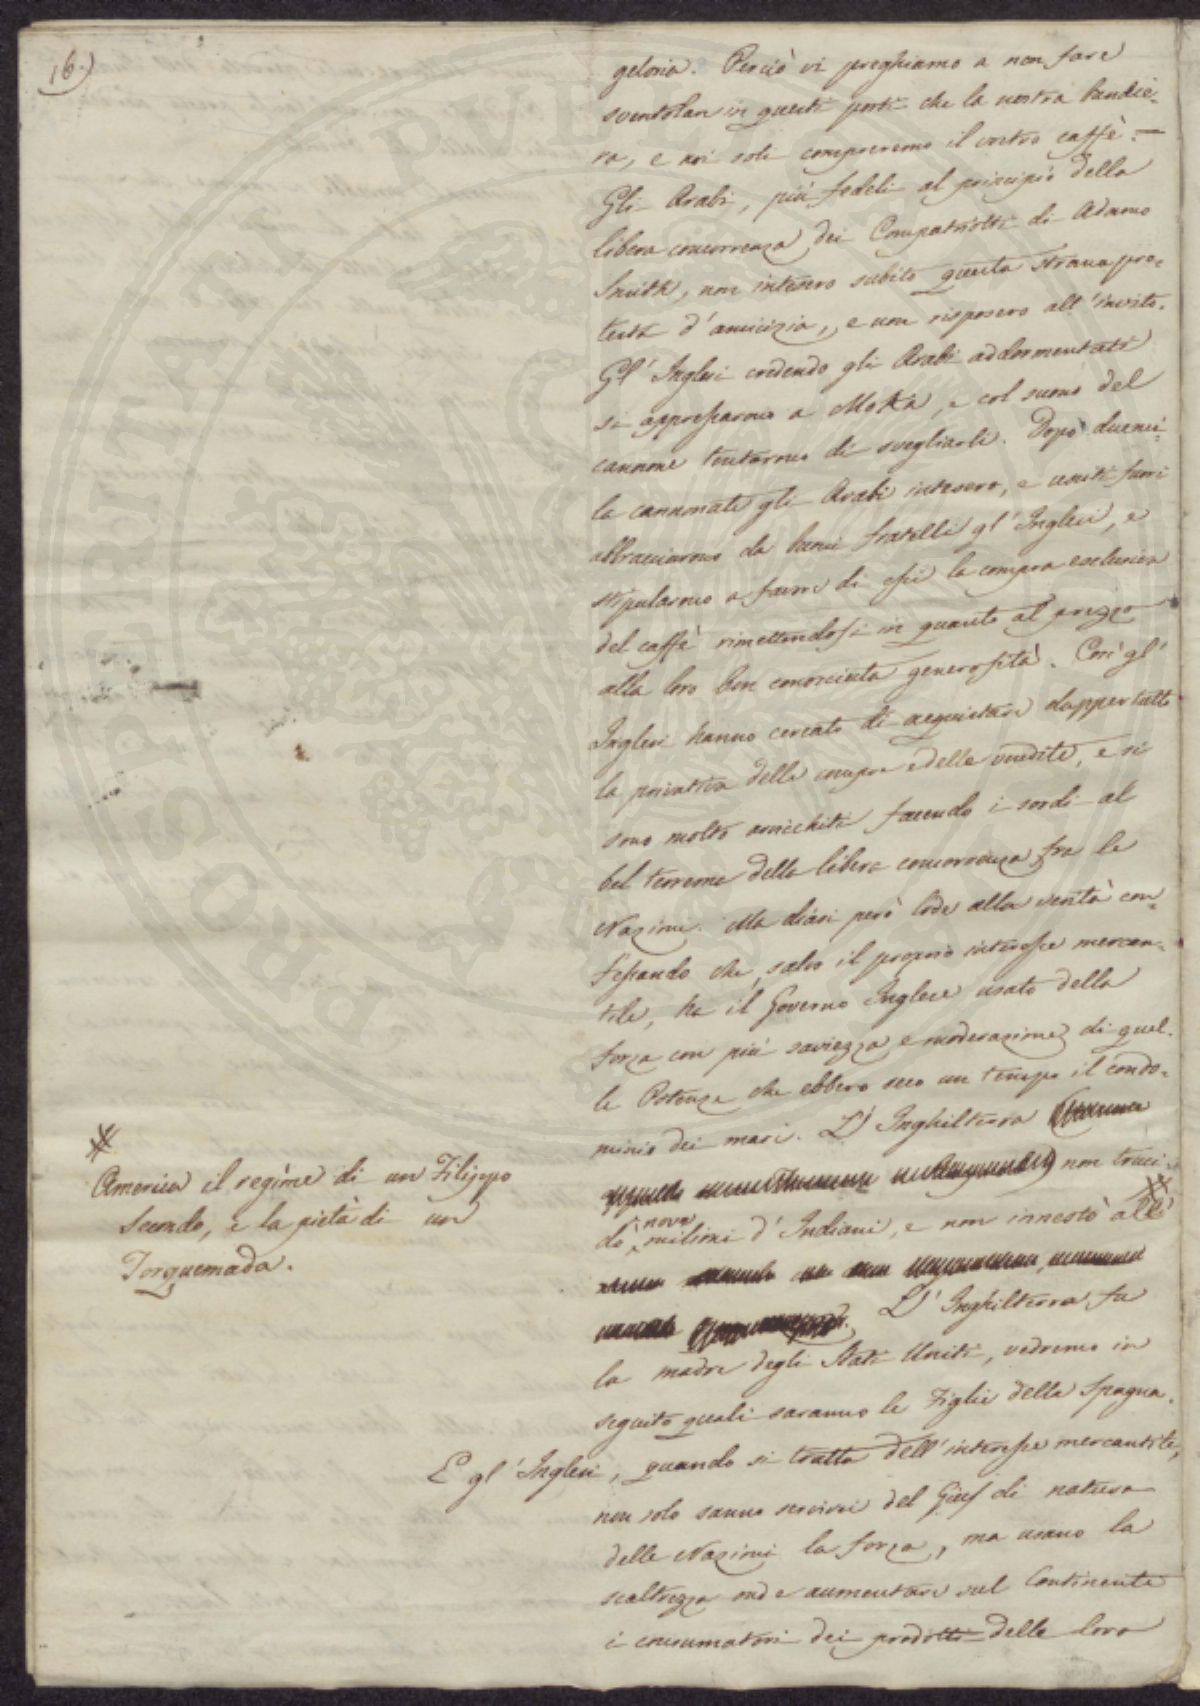 16.)
geloria. Perciò vi preghiamo a non fare
sventolar in questi porti che la nostra bandie-
ra, e noi soli compreremo il vostro caffè. —
Gli Arabi, più fedeli al principio della
libera concorrenza dei Compatriotti di Adamo
Smith, non intesero subito questa strana pro-
testa d'amicizia, e non risposero all'invito.
Gl'Inglesi credendo gli Arabi addormentati
si appressarono a Moka, e col suono del
cannone tentarono di svegliarli. Dopo duemi-
la cannonate gli Arabi intesero, e usciti fuori
abbracciarono da buoni fratelli gl'Inglesi, e
stipularono a favore di essi la compra esclusiva
del caffè rimettendosi in quanto al prezzo
alla loro ben conosciuta generosità. Così gl'
Inglesi hanno cercato di acquistare dappertutto
la privativa delle compre e delle vendite, e si
sono molto arricchiti facendo i sordi al
bel teorema della libera concorrenza fra le
Nazioni. Ma diasi però lode alla verità con-
fessando che, salvo il proprio interesse mercan-
tile, ha il Governo Inglese usato della
forza con più saviezza e moderazione di quel-
le Potenze che ebbero seco un tempo il condo-
minio dei mari. L'Inghilterra
non truci-
dò nove milioni d'Indiani, e non innestò all'
#
America il regime di un Filippo
Secondo, e la pietà di un
Torquemada.
L'Inghilterra fu
la madre degli Stati Uniti, vedremo in
seguito quali saranno le Figlie della Spagna.
E gl'Inglesi, quando si tratta dell'interesse mercantile,
non solo sanno servirsi del Gius di natura
delle Nazioni la forza, ma usano la
scaltrezza onde aumentare sul Continente
i consumatori dei prodotti delle loro